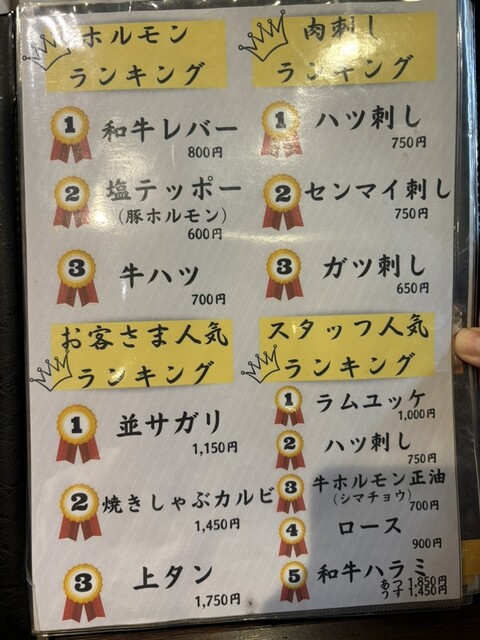 ホルモン
ランキング
1
和牛レバー
800円
2
塩テッポー
（豚ホルモン）
600円
3
牛ハツ
700円
肉刺し
ランキング
1
ハツ刺し
750円
2
センマイ刺し
750円
3
ガツ刺し
650円
お客さま人気
ランキング
1
並サガリ
1,150円
2
焼きしゃぶカルビ
1,450円
3
上タン
1,750円
スタッフ人気
ランキング
1
ラムユッケ
1,000円
2
ハツ刺し
750円
3
牛ホルモン正油
（シマチョウ）
700円
4
ロース
900円
5
和牛ハラミ
あつ 1,850円
うす 1,450円